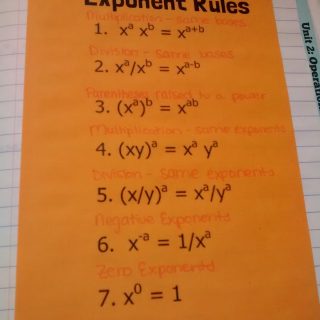 Exponent Rules
Multiplication - same bases
1. xᵃ xᵇ = xᵃ⁺ᵇ
Division - same bases
2. xᵃ/xᵇ = xᵃ⁻ᵇ
Parentheses raised to a power
3. (xᵃ)ᵇ = xᵃᵇ
Multiplication - same exponents
4. (xy)ᵃ = xᵃ yᵃ
Division - same exponents
5. (x/y)ᵃ = xᵃ/yᵃ
Negative Exponents
6. x⁻ᵃ = 1/xᵃ
Zero Exponents
7. x⁰ = 1
Unit 2: Operation